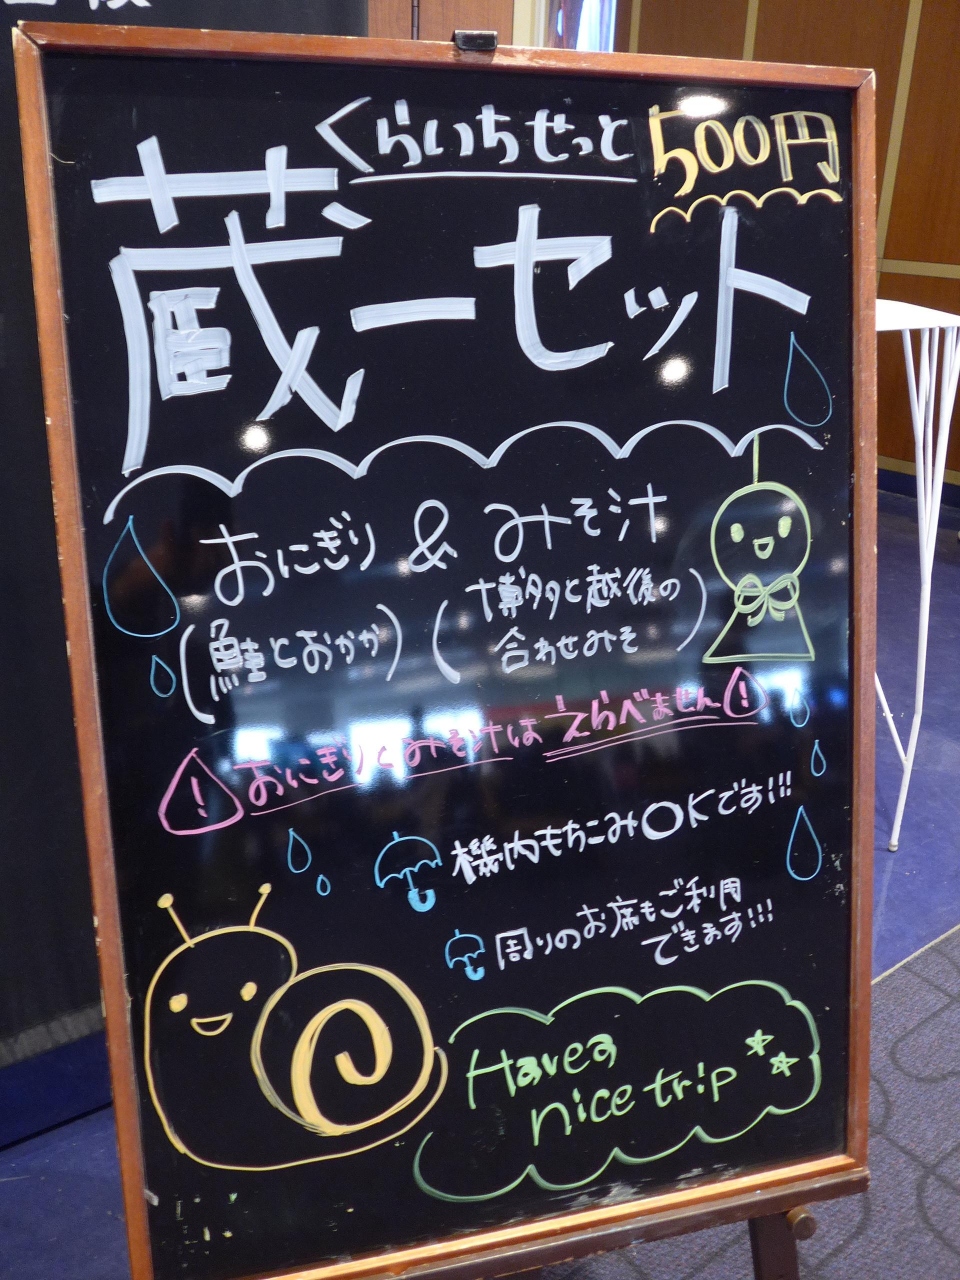 くらいちせっと 500円
蔵一セット
おにぎり & みそ汁
(鮭とおかか) (博多と越後の合わせみそ)
! おにぎりとみそ汁はえらべません !
機内もちこみOKです!!!
周りのお席もご利用
できます!!!
Have a
nice trip